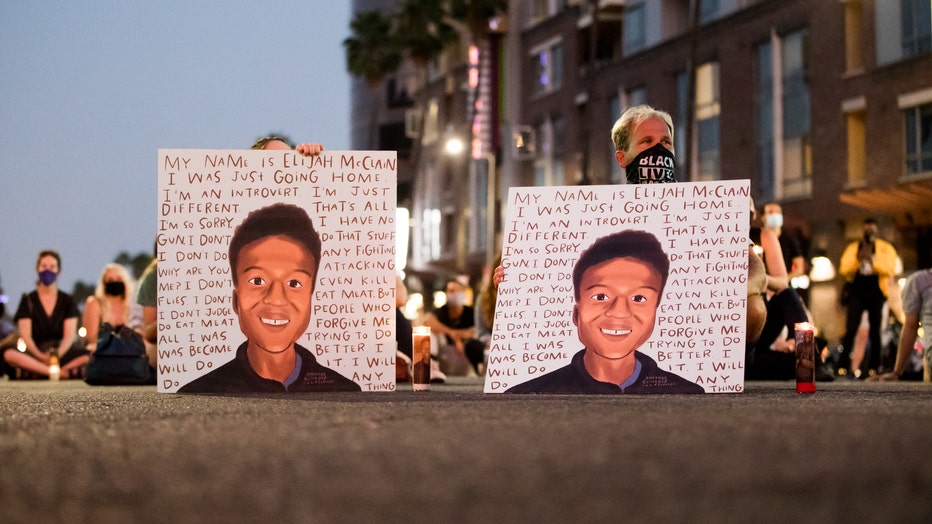 MY NAME IS ELIJAH MCCLAIN
I WAS JUST GOING HOME.
I'M AN INTROVERT. I'M JUST
DIFFERENT. THAT'S ALL
I'M SO SORRY I HAVE NO
GUN I DON'T DO THAT STUFF
I DON'T DO ANY FIGHTING
WHY ARE YOU ATTACKING
ME? I DON'T EVEN KILL
FLIES I DON'T EAT MEAT. BUT
I DON'T JUDGE PEOPLE WHO
DO EAT MEAT FORGIVE ME
ALL I WAS TRYING TO DO
WAS BECOME BETTER I WILL
DO IT. I WILL
ANY THING
MY NAME IS ELIJAH MCCLAIN
I WAS JUST GOING HOME.
I'M AN INTROVERT I'M JUST
DIFFERENT THAT'S ALL
I'M SO SORRY I HAVE NO
GUN I DON'T DO THAT STUFF
I DON'T DO ANY FIGHTING
WHY ARE YOU ATTACKING
ME? I DON'T EVEN KILL
FLIES I DON'T EAT MEAT. BUT
I DON'T JUDGE PEOPLE WHO
DO EAT MEAT FORGIVE ME.
ALL I WAS TRYING TO DO
WAS BECOME BETTER.
I WILL DO IT. I WILL
DO ANY THING
BLACK
LIVES